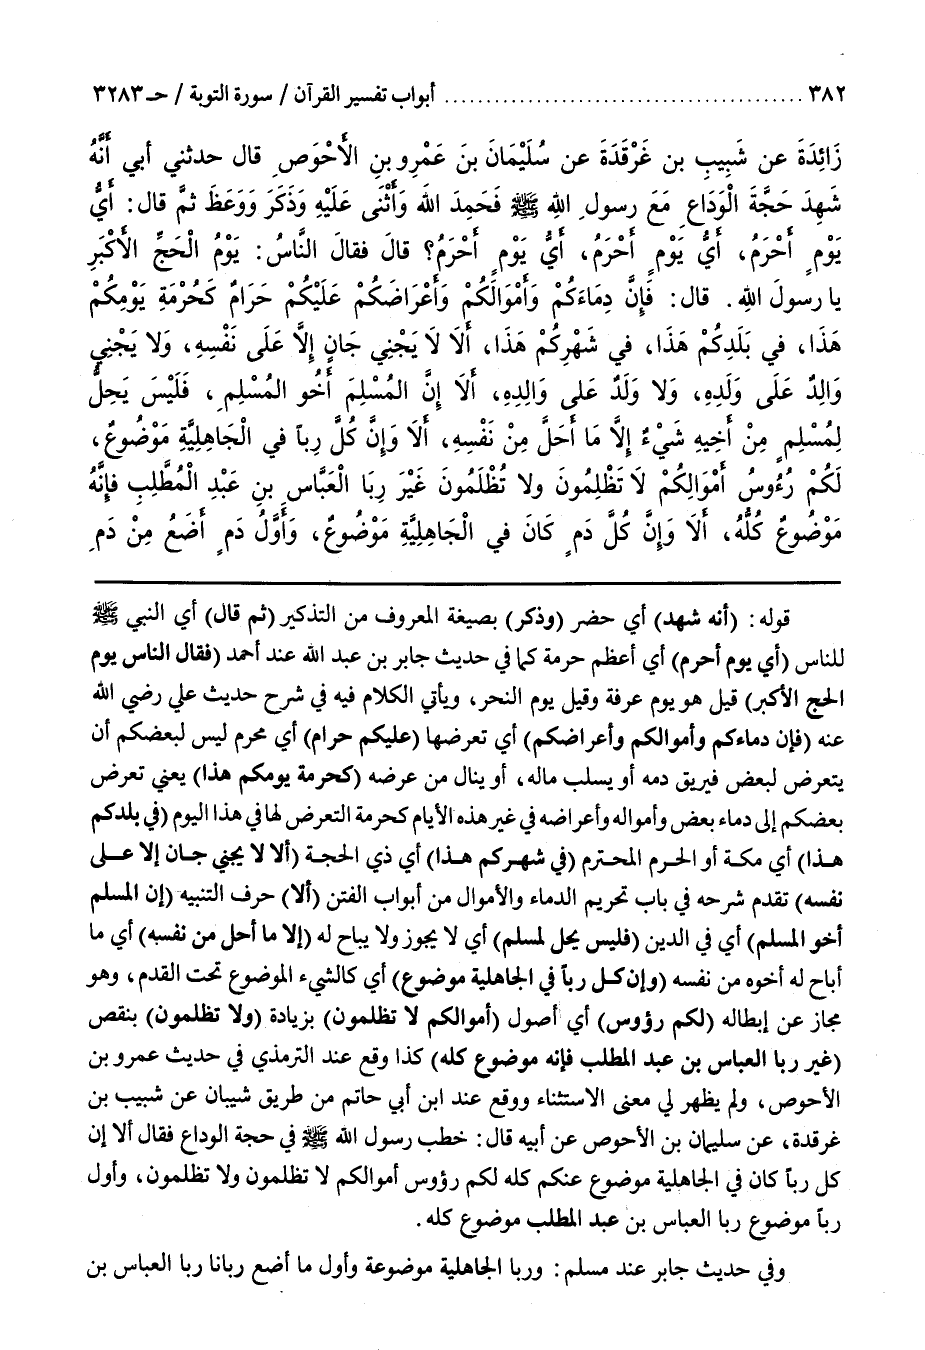 ٣٨٢ ........................................ أبواب تفسير القرآن / سورة التوبة / حـ ٣٢٨٣
زَائِدَةَ عن شَبِيبِ بن غَرْقَدَةَ عن سُلَيْمَانَ بنَ عَمْرِو بنِ الأَحْوَصِ قال حدثني أبي أَنَّهُ
شَهِدَ حَجَّةَ الْوَدَاعِ مَعَ رسولِ اللهِ ﷺ فَحَمِدَ اللهَ وَأَثْنَى عَلَيْهِ وَذَكَرَ وَوَعَظَ ثمَّ قال: أَيُّ
يَوْمٍ أَحْرَمُ، أَيُّ يَوْمٍ أَحْرَمُ، أَيُّ يَوْمٍ أَحْرَمُ؟ قالَ فقالَ النَّاسُ: يَوْمُ الْحَجِّ الأَكْبَرِ
يا رسولَ اللهِ. قال: فَإِنَّ دِمَاءَكُمْ وَأَمْوَالَكُمْ وَأَعْرَاضَكُمْ عَلَيْكُمْ حَرَامٌ كَحُرْمَةِ يَوْمِكُمْ
هَذَا، في بَلَدِكُمْ هَذَا، في شَهْرِكُمْ هَذَا، أَلَا لَا يَجْنِي جَانٍ إِلَّا عَلَى نَفْسِهِ، وَلا يَجْنِي
وَالِدٌ عَلَى وَلَدِهِ، وَلا وَلَدٌ عَلى وَالِدِهِ، أَلَا إِنَّ المُسْلِمَ أَخُو المُسْلِمِ، فَلَيْسَ يَحِلُّ
لِمُسْلِمٍ مِنْ أَخِيهِ شَيْءٌ إِلَّا مَا أَحَلَّ مِنْ نَفْسِهِ، أَلَا وَإِنَّ كُلَّ رِباً في الْجَاهِلِيَّةِ مَوْضُوعٌ،
لَكُمْ رُءُوسُ أَمْوَالِكُمْ لَا تَظْلِمُونَ ولا تُظْلَمُونَ غَيْرَ رِبَا الْعَبَّاسِ بنِ عَبْدِ الْمُطَّلِبِ فإِنَّهُ
مَوْضُوعٌ كُلُّهُ، أَلَا وَإِنَّ كُلَّ دَمٍ كَانَ في الْجَاهِلِيَّةِ مَوْضُوعٌ، وَأَوَّلُ دَمٍ أَضَعُ مِنْ دَمِ
قوله: (أنه شهد) أي حضر (وذكر) بصيغة المعروف من التذكير (ثم قال) أي النبي ﷺ
للناس (أي يوم أحرم) أي أعظم حرمة كما في حديث جابر بن عبد الله عند أحمد (فقال الناس يوم
الحج الأكبر) قيل هو يوم عرفة وقيل يوم النحر، ويأتي الكلام فيه في شرح حديث علي رضي الله
عنه (فإن دماءكم وأموالكم وأعراضكم) أي تعرضها (عليكم حرام) أي محرم ليس لبعضكم أن
يتعرض لبعض فيريق دمه أو يسلب ماله، أو ينال من عرضه (كحرمة يومكم هذا) يعني تعرض
بعضكم إلى دماء بعض وأمواله وأعراضه في غير هذه الأيام كحرمة التعرض لها في هذا اليوم (في بلدكم
هذا) أي مكة أو الحرم المحترم (في شهركم هذا) أي ذي الحجة (ألا لا يجني جان إلا على
نفسه) تقدم شرحه في باب تحريم الدماء والأموال من أبواب الفتن (ألا) حرف التنبيه (إن المسلم
أخو المسلم) أي في الدين (فليس يحل لمسلم) أي لا يجوز ولا يباح له (إلا ما أحل من نفسه) أي ما
أباح له أخوه من نفسه (وإن كل رباً في الجاهلية موضوع) أي كالشيء الموضوع تحت القدم، وهو
مجاز عن إبطاله (لكم رؤوس) أي أصول (أموالكم لا تظلمون) بزيادة (ولا تظلمون) بنقص
(غير ربا العباس بن عبد المطلب فإنه موضوع كله) كذا وقع عند الترمذي في حديث عمرو بن
الأحوص، ولم يظهر لي معنى الاستثناء ووقع عند ابن أبي حاتم من طريق شيبان عن شبيب بن
غرقدة، عن سليمان بن الأحوص عن أبيه قال: خطب رسول الله ﷺ في حجة الوداع فقال ألا إن
كل رباً كان في الجاهلية موضوع عنكم كله لكم رؤوس أموالكم لا تظلمون ولا تظلمون، وأول
رباً موضوع ربا العباس بن عبد المطلب موضوع كله.
وفي حديث جابر عند مسلم: وربا الجاهلية موضوعة وأول ما أضع ربانا ربا العباس بن